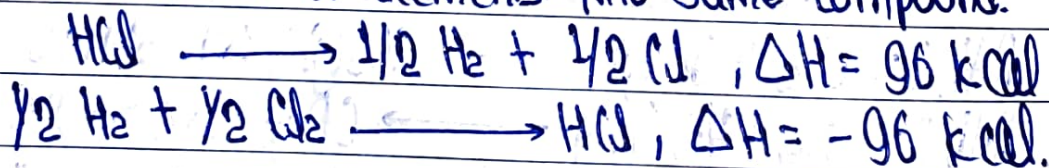 HCl → 1/2 H2 + 1/2 Cl , ΔH = 96 kcal
1/2 H2 + 1/2 Cl2 → HCl , ΔH = -96 kcal.